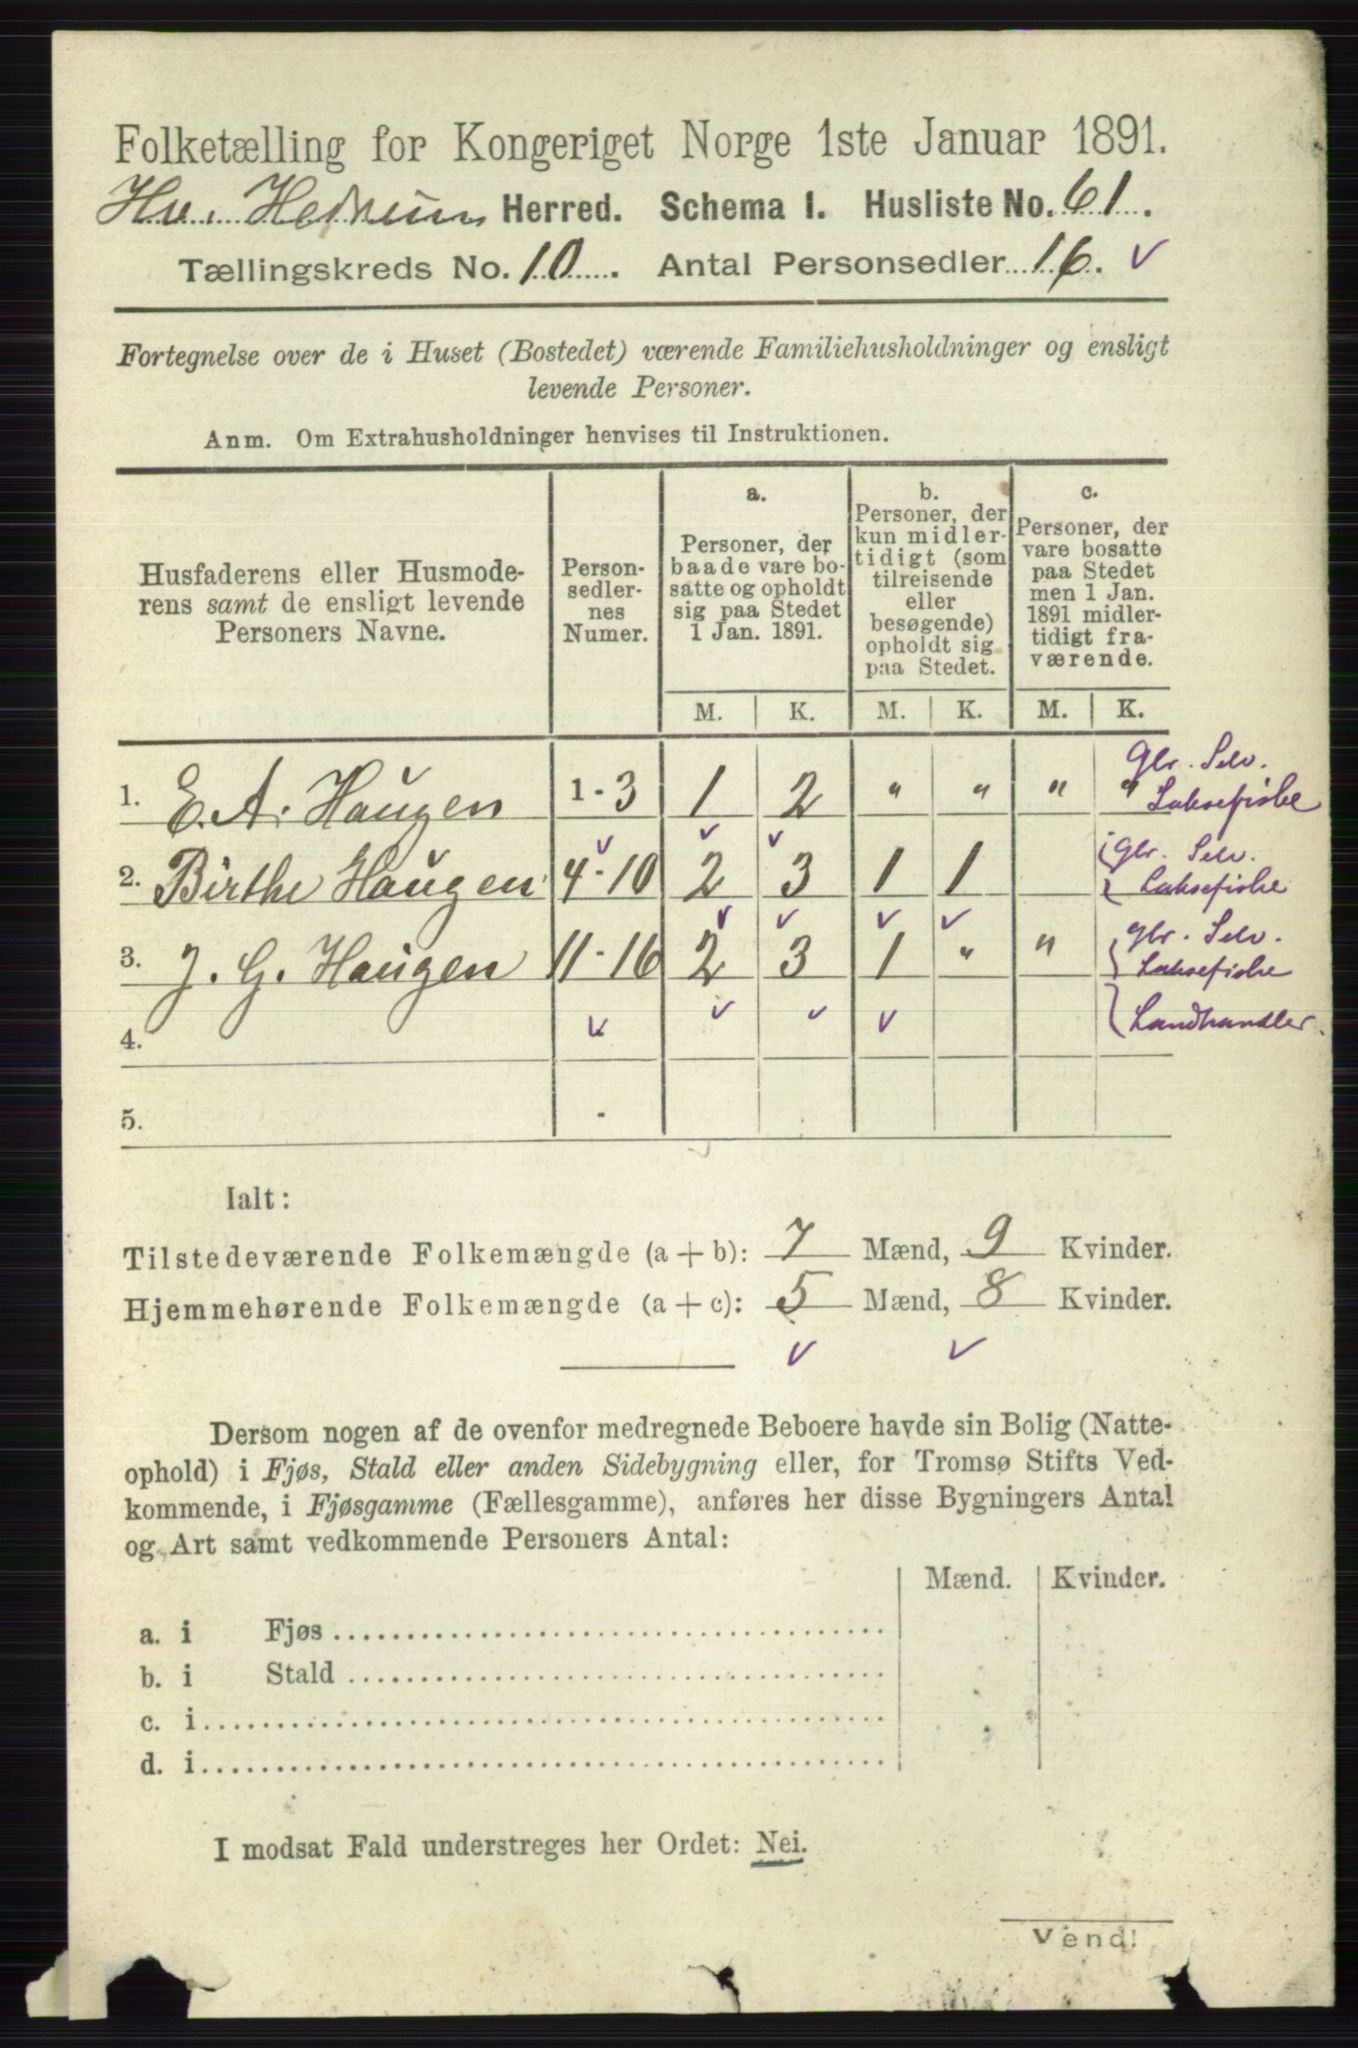 Folketælling for Kongeriget Norge 1ste Januar 1891.
Hedrum Herred. Schema I. Husliste No. 61.
Tællingskreds No. 10. Antal Personsedler 16. v
Fortegnelse over de i Huset (Bostedet) værende Familiehusholdninger og ensligt
levende Personer.
Anm. Om Extrahusholdninger henvises til Instruktionen.
Husfaderens eller Husmode-
rens samt de ensligt levende
Personers Navne.
Person-
sedler-
nes
Numer.
a.
Personer, der
baade vare bo-
satte og opholdt
sig paa Stedet
1 Jan. 1891.
b.
Personer, der
kun midler-
tidigt (som
tilreisende
eller
besøgende)
opholdt sig
paa Stedet.
c.
Personer, der
vare bosatte
paa Stedet
men 1 Jan.
1891 midler-
tidigt fra-
værende.
M. K. M. K. M. K.
1. E. A. Haugen 1-3 1 2 " " " " Gbr. Selv. Laksefiske
2. Birthe Haugen 4-10 2 3 1 1 Gbr. Selv. Laksefiske
3. J. G. Haugen 11-16 2 3 1 " " Gbr. Selv. Laksefiske
4. Landhandler.
5.
Ialt:
Tilstedeværende Folkemængde (a + b): 7 Mænd, 9 Kvinder.
Hjemmehørende Folkemængde (a + c): 5 Mænd, 8 Kvinder.
Dersom nogen af de ovenfor medregnede Beboere havde sin Bolig (Natte-
ophold) i Fjøs, Stald eller anden Sidebygning eller, for Tromsø Stifts Ved-
kommende, i Fjøsgamme (Fællesgamme), anføres her disse Bygningers Antal
og Art samt vedkommende Personers Antal:
Mænd. Kvinder.
a. i Fjøs
b. i Stald
c. i
d. i
I modsat Fald understreges her Ordet: Nei.
Vend!